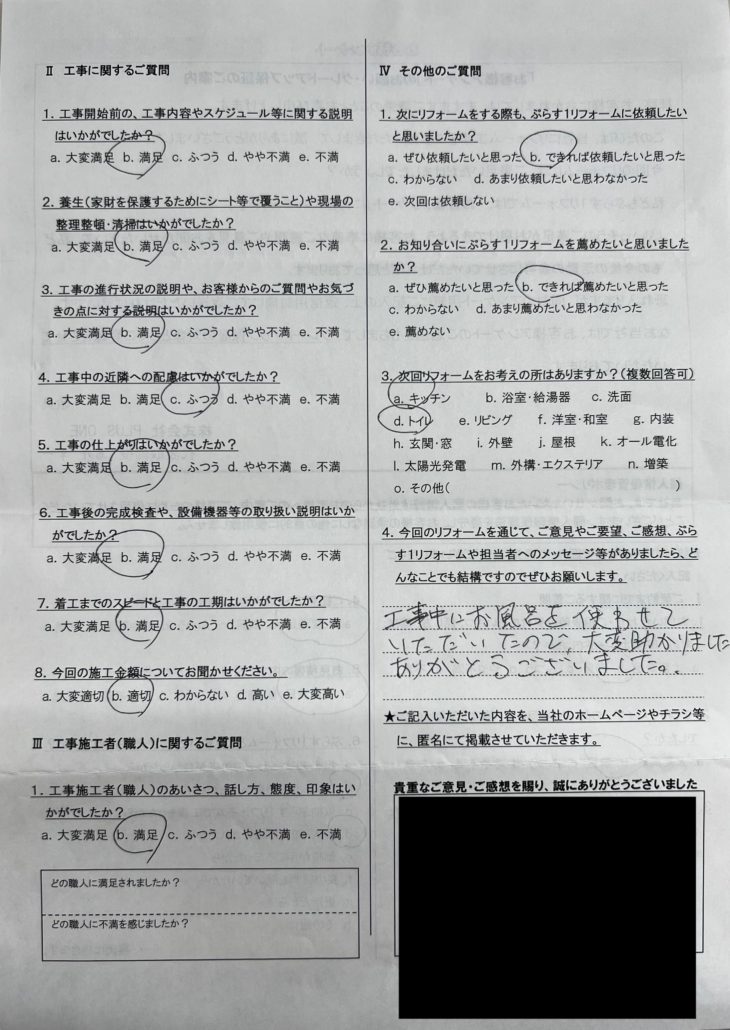 Ⅱ 工事に関するご質問
1. 工事開始前の、工事内容やスケジュール等に関する説明
はいかがでしたか？
a. 大変満足 b. 満足 c. ふつう d. やや不満 e. 不満
2. 養生(家財を保護するためにシート等で覆うこと)や現場の
整理整頓・清掃はいかがでしたか？
a. 大変満足 b. 満足 c. ふつう d. やや不満 e. 不満
3. 工事の進行状況の説明や、お客様からのご質問やお気づ
きの点に対する説明はいかがでしたか？
a. 大変満足 b. 満足 c. ふつう d. やや不満 e. 不満
4. 工事中の近隣への配慮はいかがでしたか？
a. 大変満足 b. 満足 c. ふつう d. やや不満 e. 不満
5. 工事の仕上がりはいかがでしたか？
a. 大変満足 b. 満足 c. ふつう d. やや不満 e. 不満
6. 工事後の完成検査や、設備機器等の取り扱い説明はいか
がでしたか？
a. 大変満足 b. 満足 c. ふつう d. やや不満 e. 不満
7. 着工までのスピードと工事の工期はいかがでしたか？
a. 大変満足 b. 満足 c. ふつう d. やや不満 e. 不満
8. 今回の施工金額についてお聞かせください。
a. 大変適切 b. 適切 c. わからない d. 高い e. 大変高い
Ⅲ 工事施工者(職人)に関するご質問
1. 工事施工者(職人)のあいさつ、話し方、態度、印象はい
かがでしたか？
a. 大変満足 b. 満足 c. ふつう d. やや不満 e. 不満
どの職人に満足されましたか？
どの職人に不満を感じましたか？
Ⅳ その他のご質問
1. 次にリフォームをする際も、ぷらす1リフォームに依頼したい
と思いましたか？
a. ぜひ依頼したいと思った b. できれば依頼したいと思った
c. わからない d. あまり依頼したいと思わなかった
e. 次回は依頼しない
2. お知り合いにぷらす1リフォームを薦めたいと思いました
か？
a. ぜひ薦めたいと思った b. できれば薦めたいと思った
c. わからない d. あまり薦めたいと思わなかった
e. 薦めない
3. 次回リフォームをお考えの所はありますか？(複数回答可)
a. キッチン b. 浴室・給湯器 c. 洗面
d. トイレ e. リビング f. 洋室・和室 g. 内装
h. 玄関・窓 i. 外壁 j. 屋根 k. オール電化
l. 太陽光発電 m. 外構・エクステリア n. 増築
o. その他( )
4. 今回のリフォームを通じて、ご意見やご要望、ご感想、ぷら
す1リフォームや担当者へのメッセージ等がありましたら、ど
んなことでも結構ですのでぜひお願いします。
工事中にお風呂を使わせて
いただいたので、大変助かりました
ありがとうございました。
★ご記入いただいた内容を、当社のホームページやチラシ等
に、匿名にて掲載させていただきます。
貴重なご意見・ご感想を賜り、誠にありがとうございました